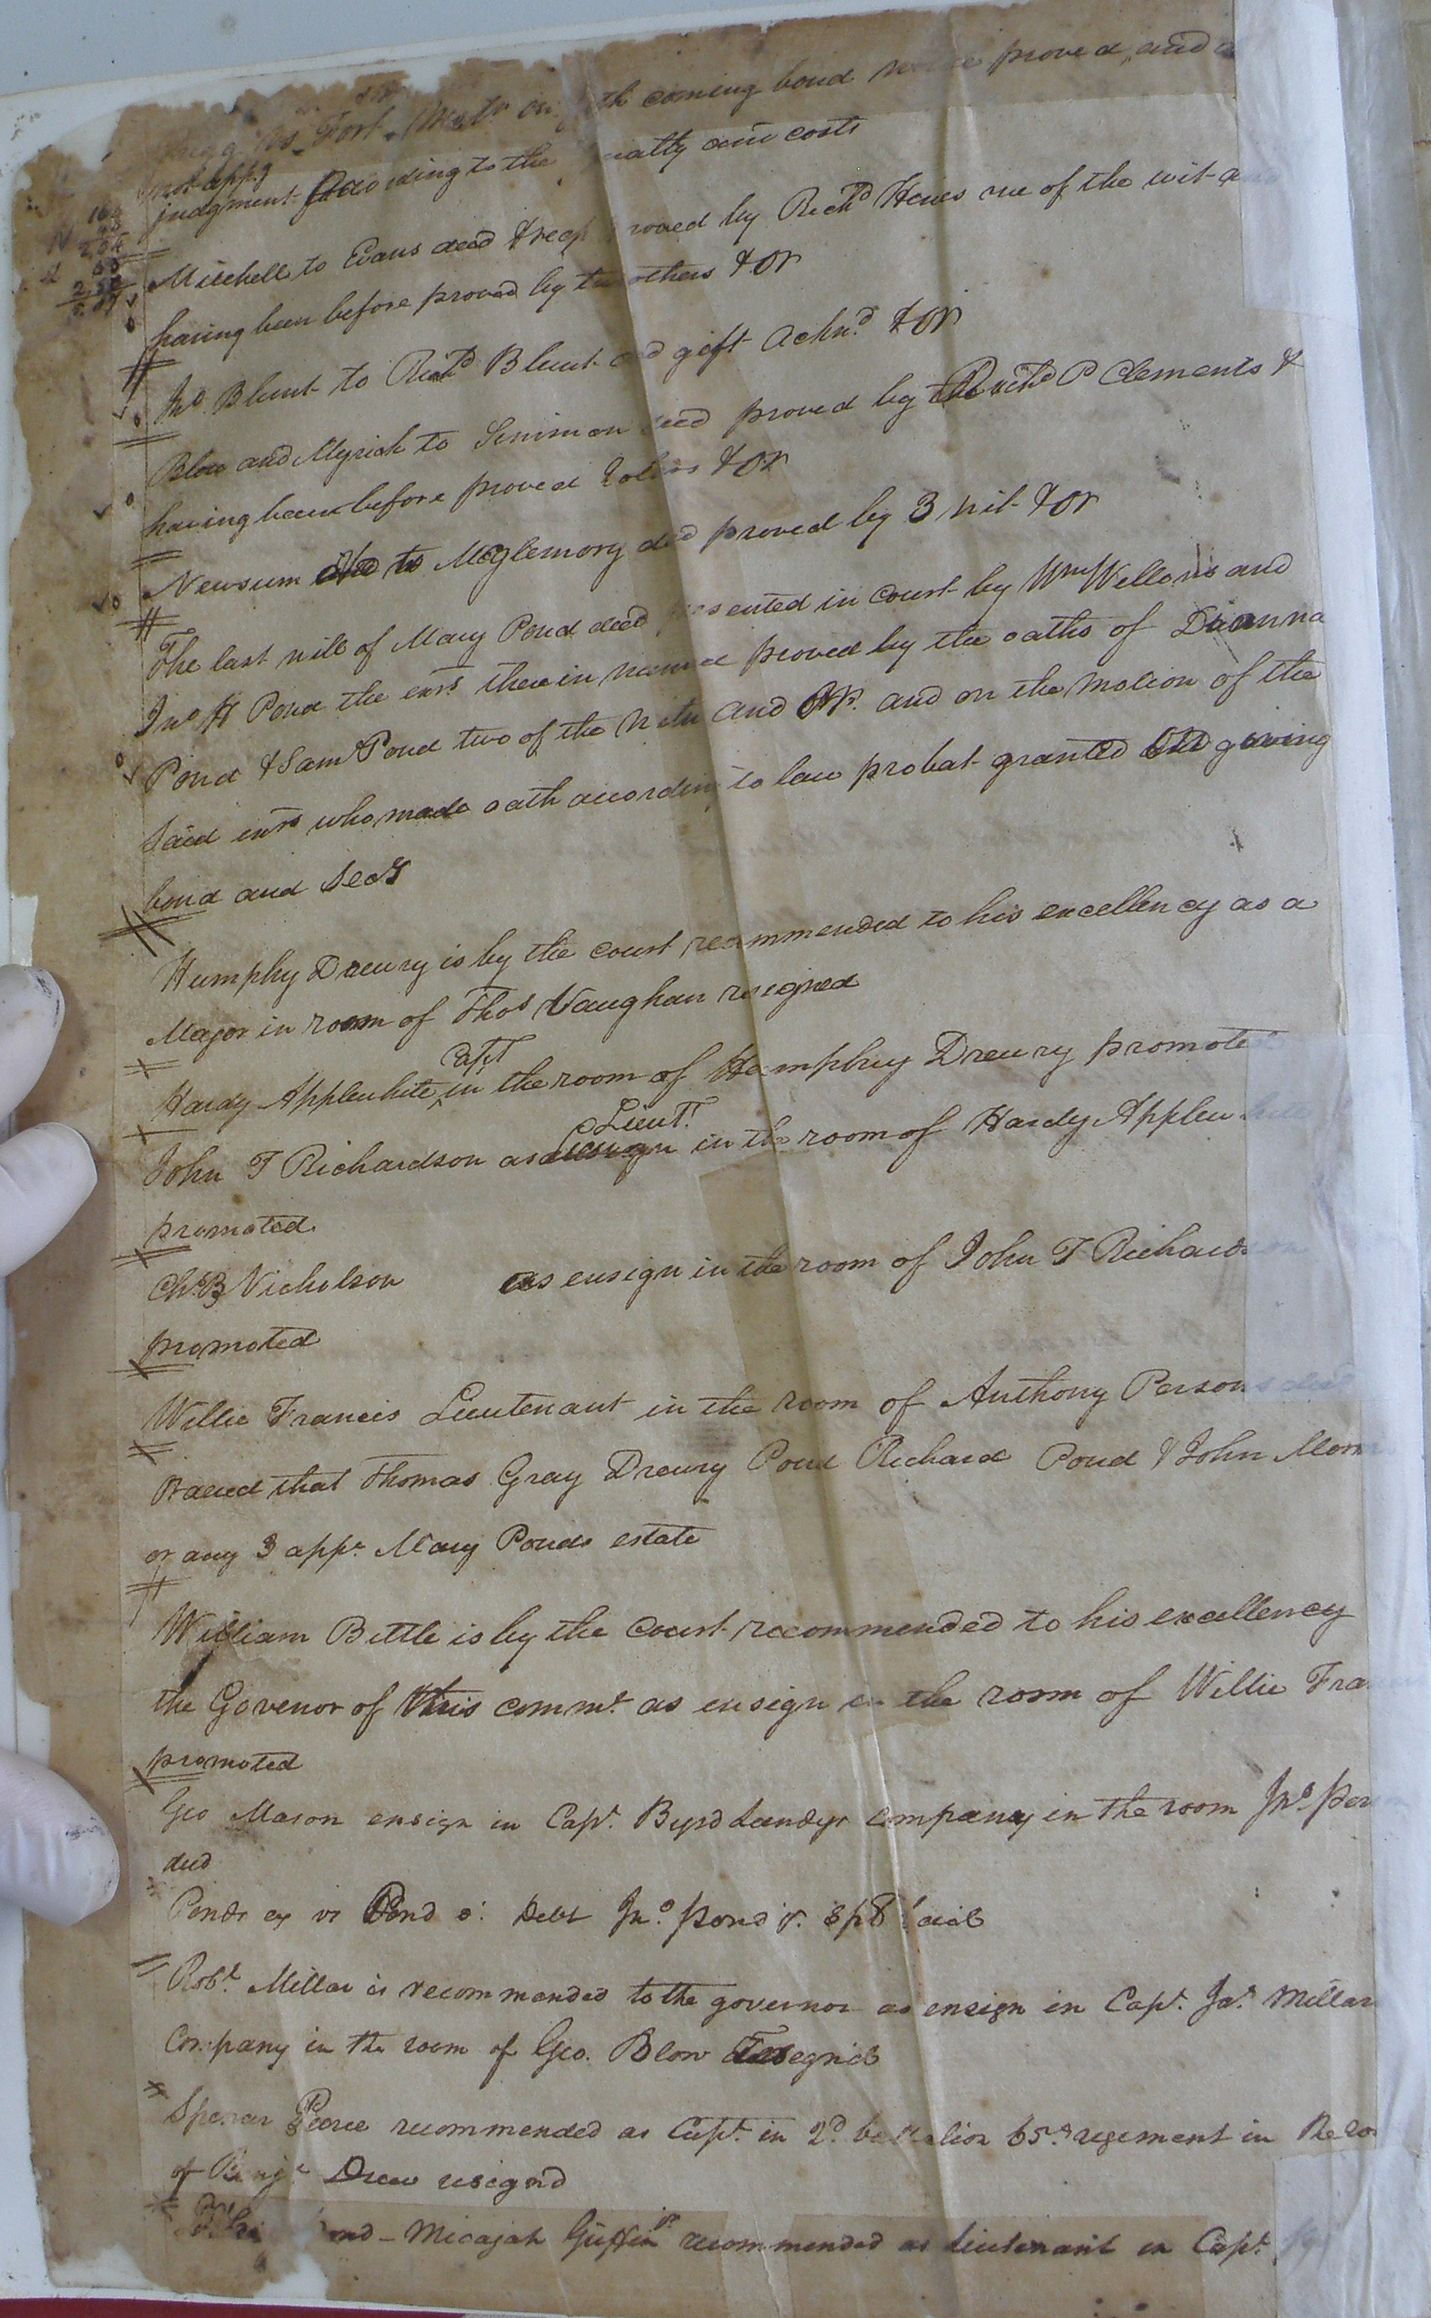 vs Fort coming bond proved, and
not appg
judgment according to the costs
Mitchell to Evans deed & rect proved by Richd of the wit
having been before proved by two others & OR
Jno. Blunt to Richd Blunt gift Acknd & OR
Blow and Myrick to Simmon deed proved by Richd P Clements &
having been before proved 2 others & OR
Newsum to McGlemory deed proved by 3 wit & OR
The last will of Mary Pond decd presented in court by Wm Wellons and
Jno H Pond the exrs therein named proved by the oaths of Dianna
Pond & Saml Pond two of the wits and OR. and on the motion of the
said exrs who made oath according to law probat granted giving
bond and secy
Humphy Drewry is by the court recommended to his excellency as a
Major in room of Thos Vaughan resigned
Capt
Hardy Applewhite in the room of Humphrey Drewry promoted
Lieut.
John T Richardson as ensign in the room of Hardy Applewhite
promoted
Chs. B Nicholson as ensign in the room of John T Richardson
promoted
Willie Francis Lieutenant in the room of Anthony Persons decd
Ordered that Thomas Gray Drewry Pond Richard Pond & John
or any 3 appr. Mary Ponds estate
William Bittle is by the court recommended to his excellency
the Govenor of this commt. as ensign in the room of Willie Fra
promoted
Geo Mason ensign in Capt. Byrd company in the room Jno.
decd
Ponds ex vs Pond Debt Jno. Pond
Robt. Millar is recommended to the governor as ensign in Capt. Jas. Millar
Company in the room of Geo. Blow resegnd
Spencer Pierce recommended as Capt. in 2d. battalion 65th regement in the roo
of Benjn Drew resignd
Micajah Griffin jr recommended as lieutenant in Capt.